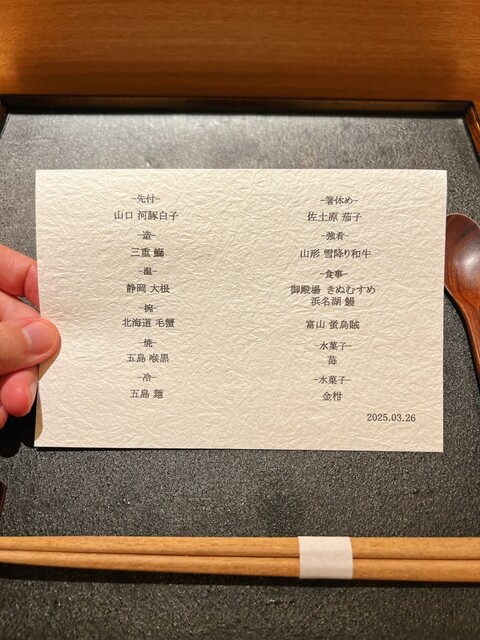 -先付-
山口 河豚白子
-造-
三重 鰤
-温-
静岡 大根
-椀-
北海道 毛蟹
-焼-
五島 喉黒
-冷-
五島 麺
-箸休め-
佐土原 茄子
-強肴-
山形 雪降り和牛
-食事-
御殿場 きぬむすめ
浜名湖 鰻
富山 蛍烏賊
-水菓子-
苺
-水菓子-
金柑
2025.03.26